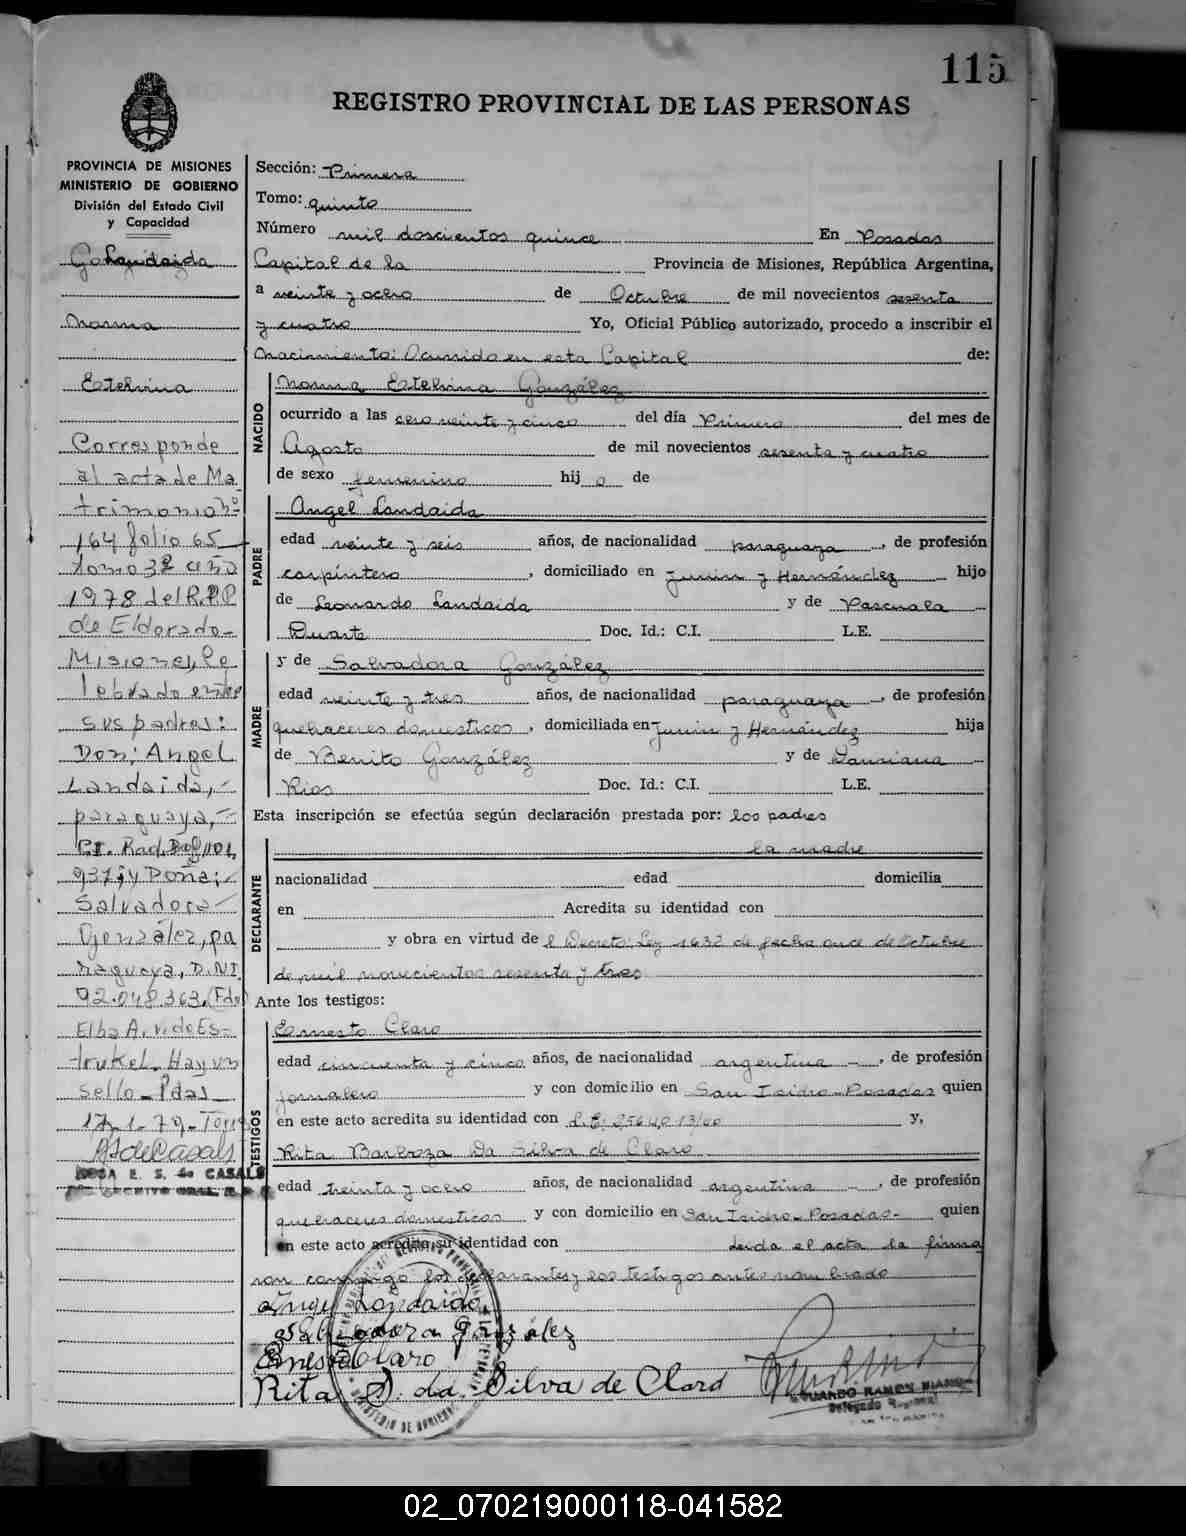 115
REGISTRO PROVINCIAL DE LAS PERSONAS
PROVINCIA DE MISIONES
MINISTERIO DE GOBIERNO
División del Estado Civil
y Capacidad
Landaida
Norma
Estelvina
Corresponde
al acta de Ma
trimonio Nº
164 folio 65
tomo 3º año
1978 del R.P.P
de Eldorado-
Misiones, Ce
lebrado entre
sus padres:
Don: Angel
Landaida,-
paraguaya,-
C.I. Rad.
937; y Doña:-
Salvadora-
González, pa
raguaya, D.N.I.
92.048.363. (Fdo)
Elba A. v. de Es-
trukel. Hay un
Sello_Pdas_
17-1-79-
A S de Casals
E. S. de CASALS
Sección: Primera
Tomo: quinto
Número mil doscientos quince En Posadas
Capital de la Provincia de Misiones, República Argentina,
a veinte y ocho de Octubre de mil novecientos sesenta
y cuatro Yo, Oficial Público autorizado, procedo a inscribir el
Nacimiento: Ocurrido en esta Capital de:
NACIDO
Norma Estelvina González
ocurrido a las cero veinte y cinco del día Primero del mes de
Agosto de mil novecientos sesenta y cuatro
de sexo femenino hij a de
PADRE
Angel Landaida
edad veinte y seis años, de nacionalidad paraguaya, de profesión
carpintero, domiciliado en Junin y Hernández hijo
de Leonardo Landaida y de Pascuala
Duarte Doc. Id.: C.I. L.E.
MADRE
y de Salvadora González
edad veinte y tres años, de nacionalidad paraguaya, de profesión
quehaceres domesticos, domiciliada en Junin y Hernández hija
de Benito González y de Damiana
Rios Doc. Id.: C.I. L.E.
Esta inscripción se efectúa según declaración prestada por: los padres
la madre
DECLARANTE
nacionalidad edad domicilia
en Acredita su identidad con
y obra en virtud de l Decreto: Ley 1632 de fecha once de Octubre
de mil novecientos sesenta y tres
Ante los testigos:
TESTIGOS
Ernesto Claro
edad cincuenta y cinco años, de nacionalidad argentina -, de profesión
jornalero y con domicilio en San Isidro-Posadas quien
en este acto acredita su identidad con y,
Rita Barboza Da Silva de Claro
edad treinta y ocho años, de nacionalidad argentina -, de profesión
quehaceres domesticos y con domicilio en San Isidro-Posadas- quien
en este acto acredita su identidad con Leida el acta la firma
ron conmigo los declarantes y los testigos antes nombrado
Angel Landaida
Salvadora González
Ernesto Claro
Rita B. da Silva de Claro
EDUARDO RAMON
Delegado Regional
02_070219000118-041582